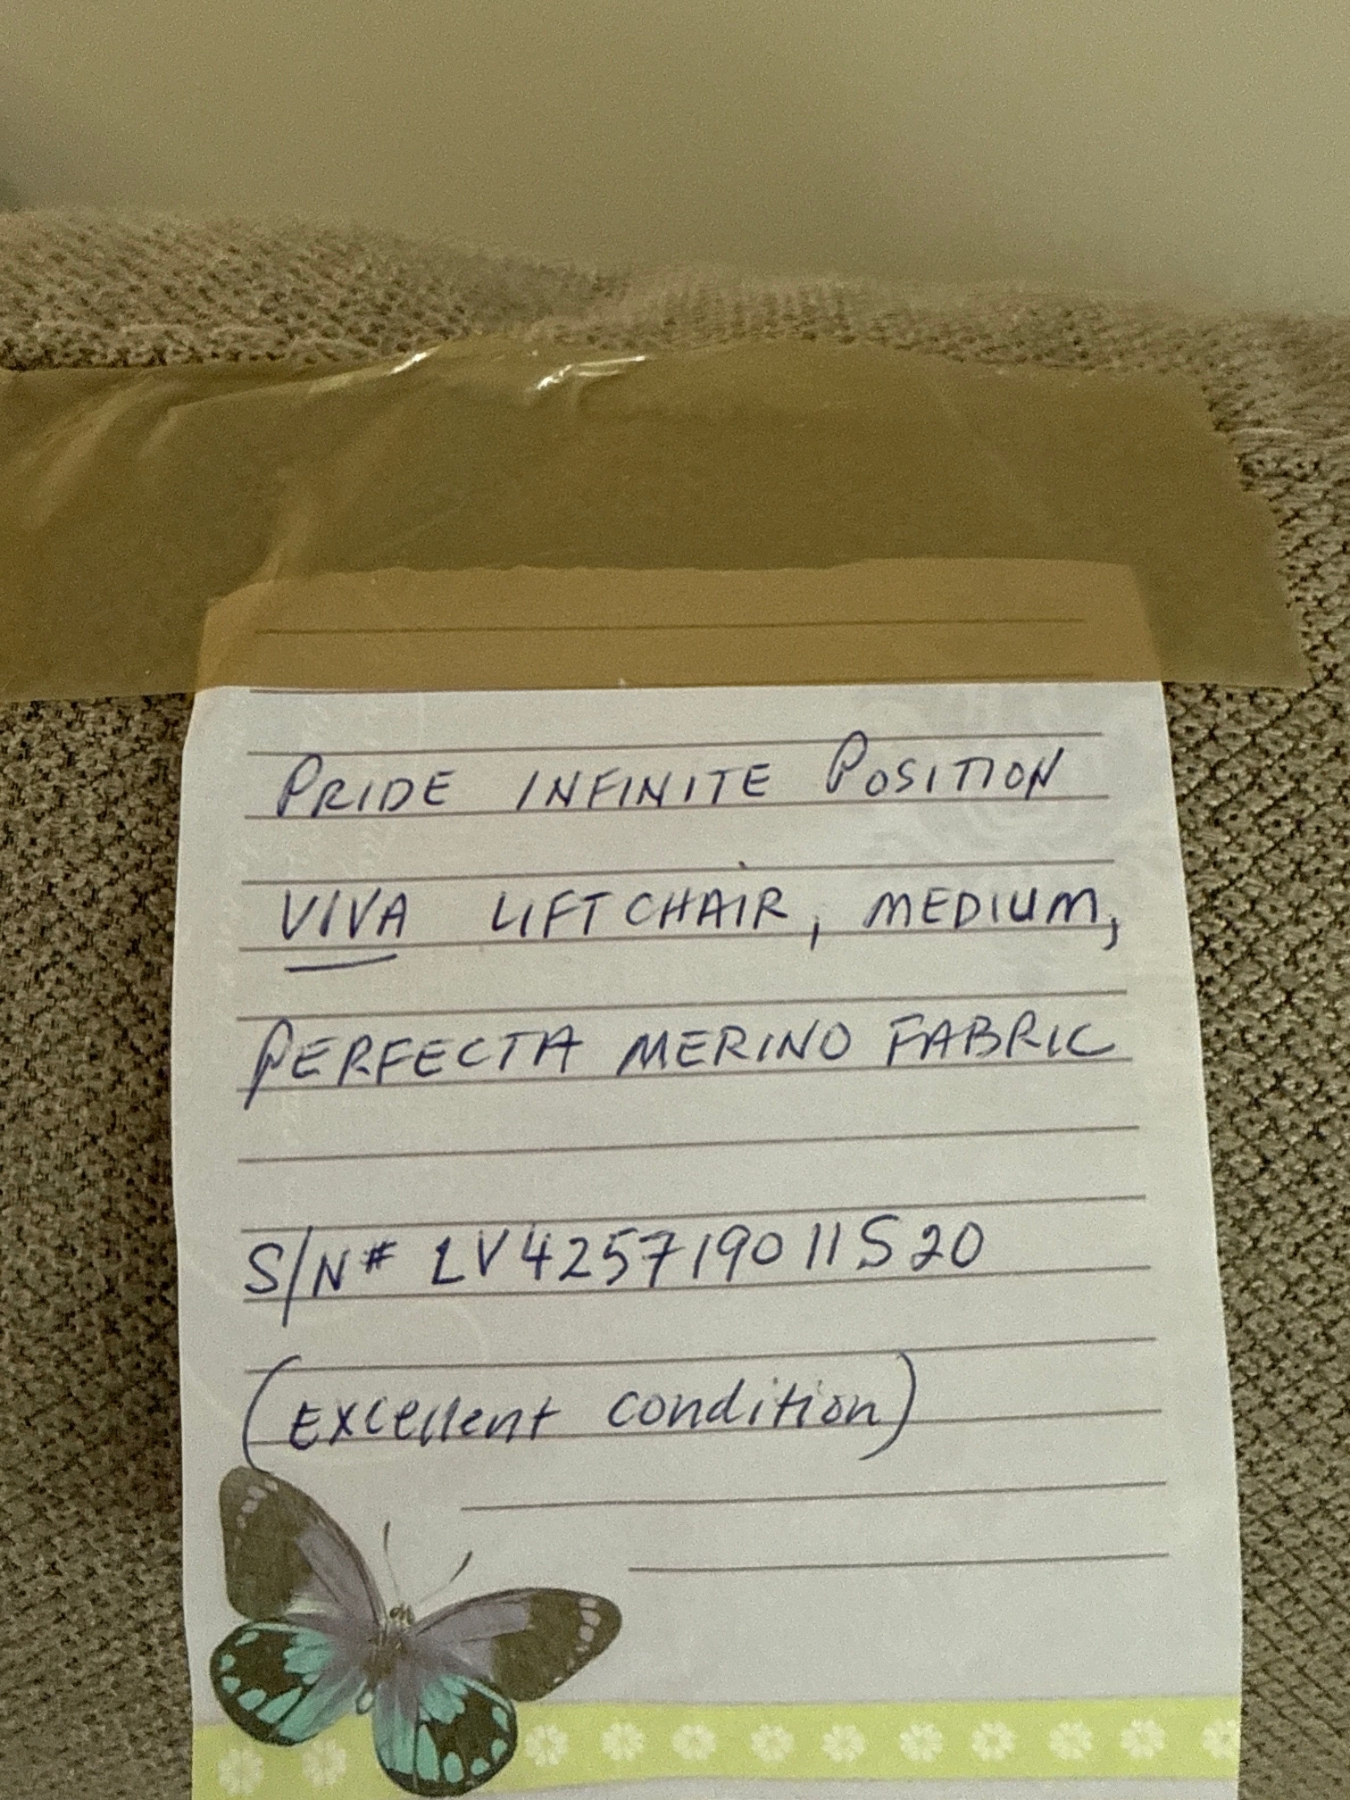 PRIDE INFINITE POSITION
VIVA LIFT CHAIR, MEDIUM,
PERFECTA MERINO FABRIC
S/N# LV425719011S20
(Excellent condition)